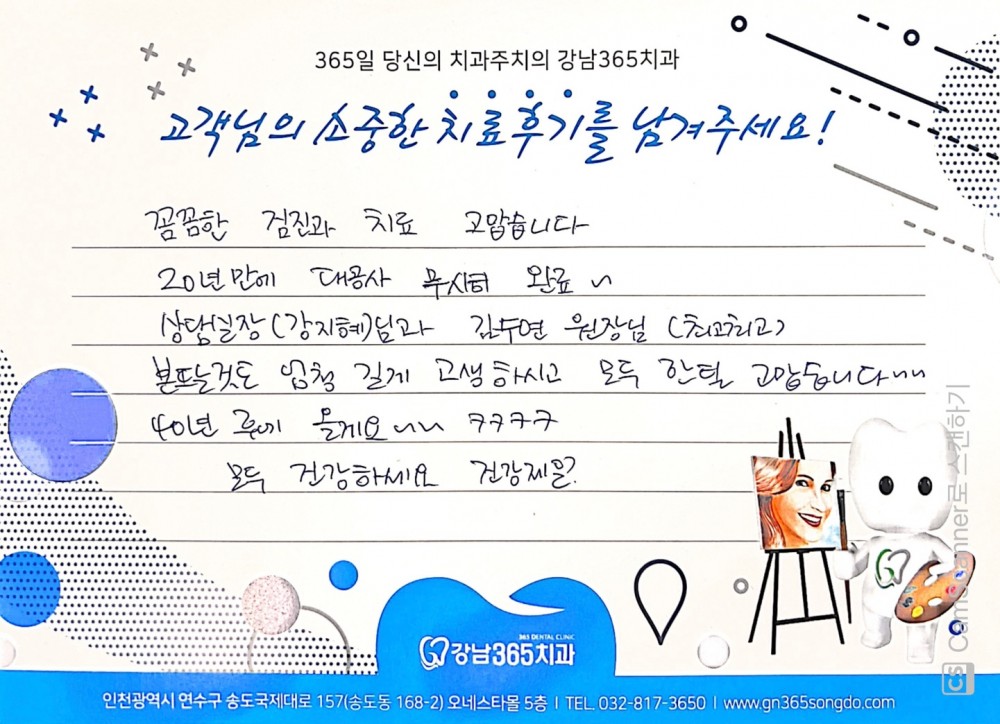 365일 당신의 치과주치의 강남365치과
고객님의 소중한 치료후기를 남겨주세요!
꼼꼼한 검진과 치료 고맙습니다
20년만에 대공사 무사히 완료~
상담실장(강지혜)님과 김수연 원장님 (최고최고)
본뜨는것도 엄청 길게 고생하시고 모두 한텔 고맙습니다~~
40년 후에 올게요~~ ㅋㅋㅋㅋ
모두 건강하세요 건강제일?
365 DENTAL CLINIC
강남365치과
인천광역시 연수구 송도국제대로 157(송도동 168-2) 오네스타몰 5층 I TEL. 032-817-3650 I www.gn365songdo.com
CS CamScanner로 스캔하기